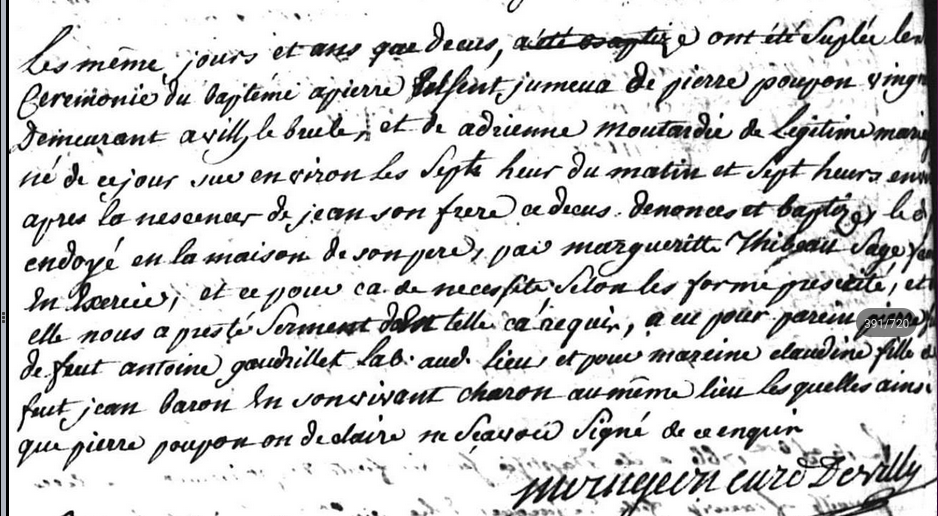 les même jours et ans que decus, a été baptize ont été suplée les
Ceremonie du baptéme a pierre jumeua de pierre poupon
Demeurant a villy le brule, et de adrienne moutardié de legitime
né de ce jour sue environ les septe heur du matin et sept heurs
apres la nescence de jean son frere ce decus denoncés et baptize, le
endoyé en la maison de son pere, par margueritte Thibeau sage
En Exercice, et ce pour ca de necessite selon les forme prescrite, et
elle nous a presté serment telle ca requir, a eu pour parein pierre
391/720
de feut antoine gaudrillet lab. aud. lieu et pour mareine claudine fille
feut jean baron En son vivant charon au même lieu lesquelles ainsi
que pierre poupon on declaire ne sçavoir signé de ce enquir
curé De villy